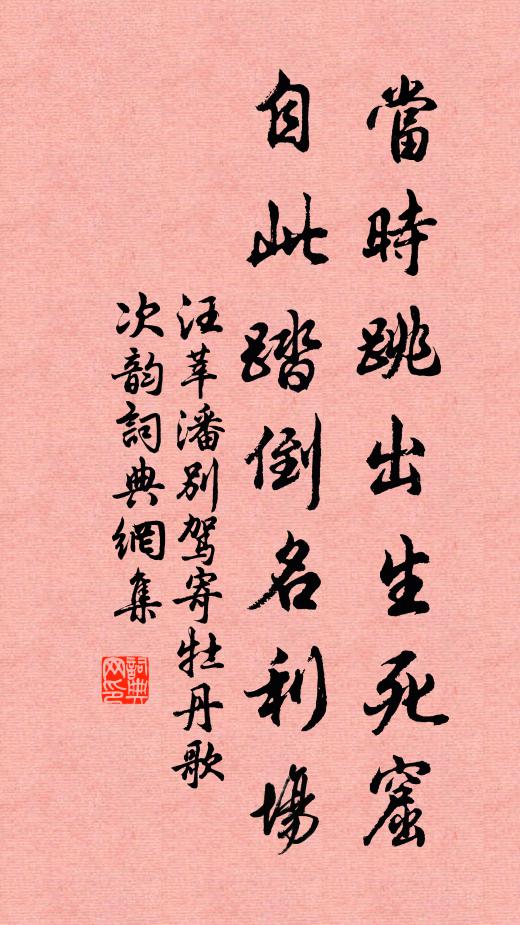 當時跳出生死窟
自此踏倒名利場
汪莘潘別駕寄牡丹歌
次韵詞典網集
詞典網印